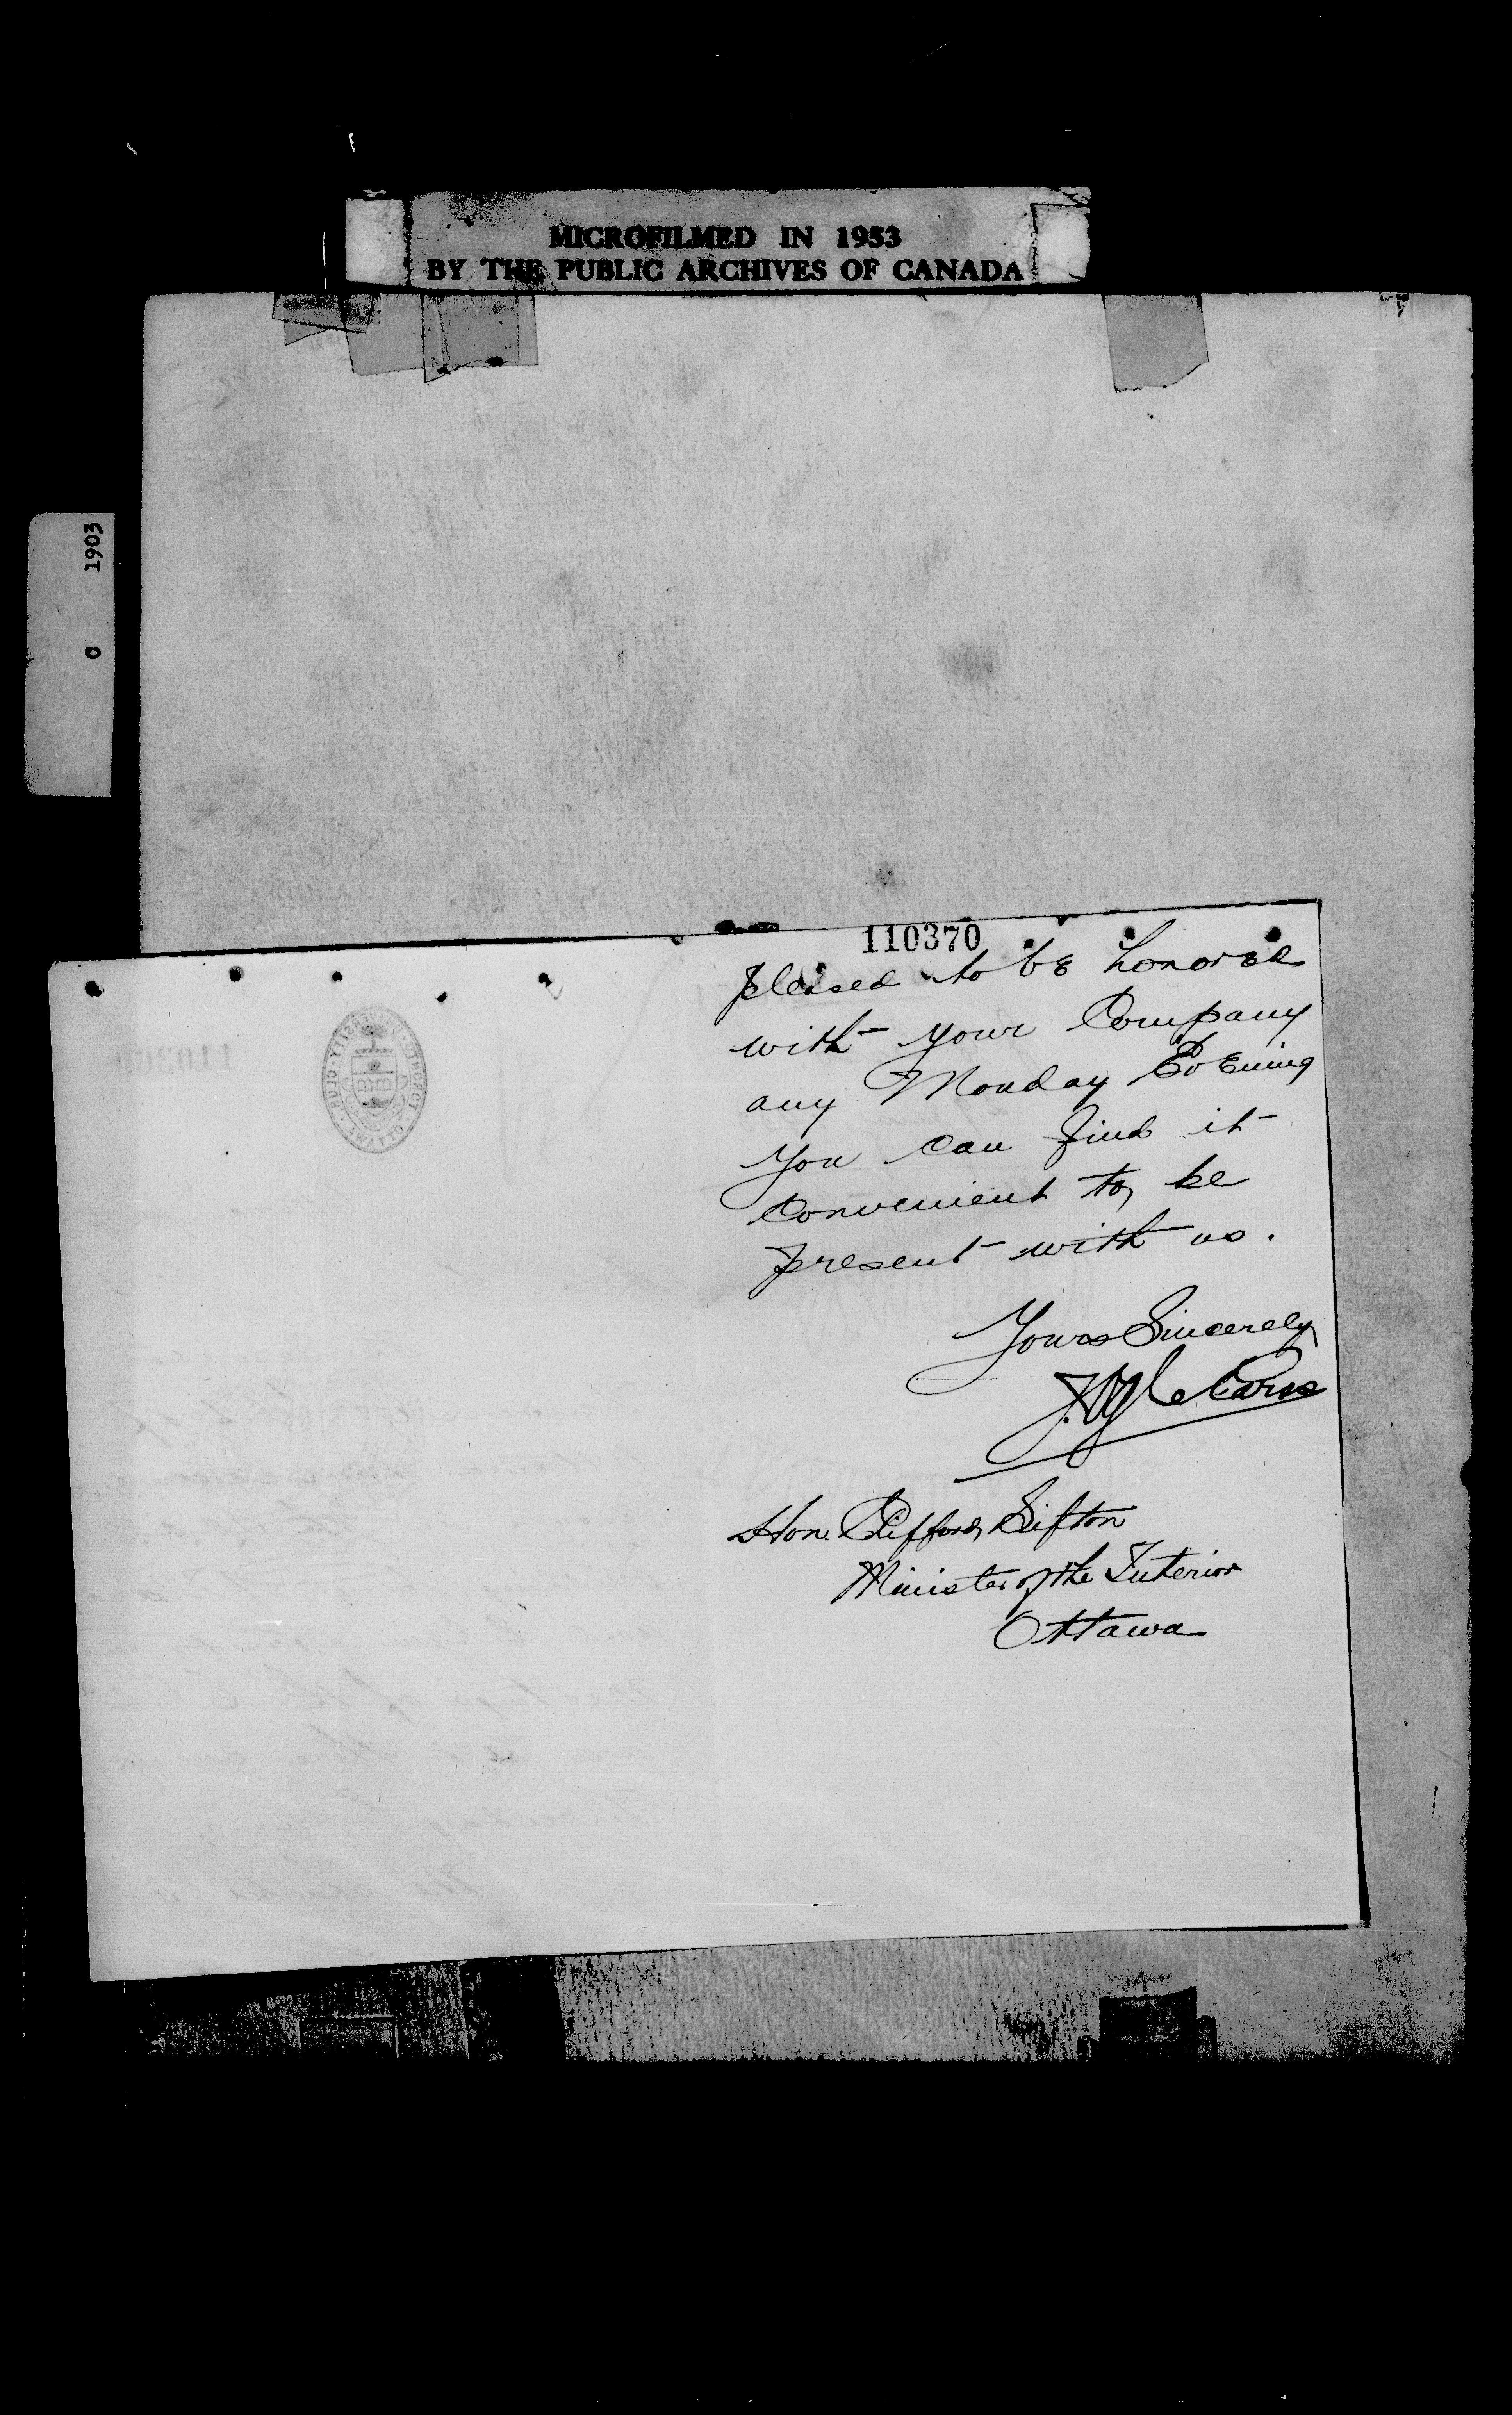 MICROFILMED IN 1953
BY THE PUBLIC ARCHIVES OF CANADA
C 1903
110370
pleased to be honored
with your Company
any Monday Evening
you can find it
convenient to be
present with us.
Yours Sincerely
Hon. Clifford Sifton
Minister of the Interior
Ottawa